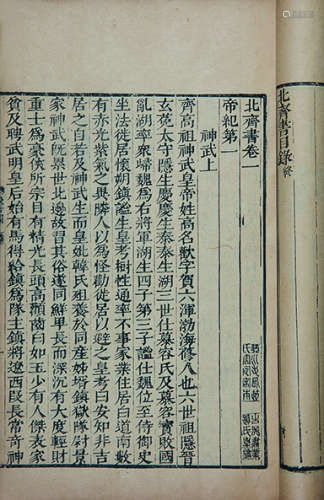 北齊書目錄終
北齊書卷一
帝紀第一
神武上
齊高祖神武皇帝姓高名歡字賀六渾渤海修人也六世祖隱晉
玄菟太守隱生慶慶生泰泰生湖三世仕慕容氏及慕容寶敗國
亂湖率衆歸魏爲右將軍湖生四子第三子謐仕魏位至侍御史
坐法徙居懷朔鎮謐生皇考樹性通率不事家業住居白道南數
有赤光紫氣之異隣人以爲怪勸徙居以避之皇考曰安知非吉
居之自若及神武生而皇妣韓氏殂養於同產姊壻鎮獄隊尉景
家神武既累世北邊故習其俗遂同鮮卑長而深沉有大度輕財
重士爲豪俠所宗目有精光長頭高顴齒白如玉少有人傑表家
貧及聘武明皇后始有馬得給鎮爲隊主鎮將遼西段長常奇神